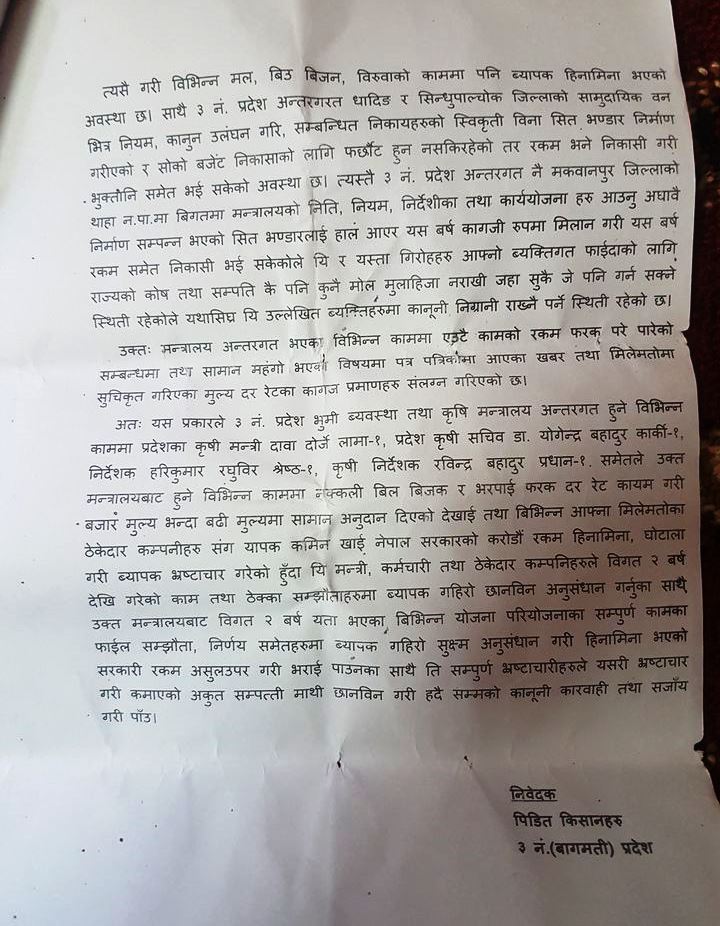 त्यसै गरी विभिन्न मल, बिउ बिजन, विरुवाको काममा पनि ब्यापक हिनामिना भएको
अवस्था छ। साथै ३ नं. प्रदेश अन्तरगरत धादिङ र सिन्धुपाल्चोक जिल्लाको सामुदायिक वन
भित्र नियम, कानुन उलंघन गरि, सम्बन्धित निकायहरुको स्विकृती विना सित भण्डार निर्माण
गरीएको र सोको बजेंट निकासाको लागि फर्छौट हुन नसकिरहेको तर रकम भने निकासी गरी
भुक्तौनि समेत भई सकेको अवस्था छ। त्यस्तै ३ नं. प्रदेश अन्तरगत नै मकवानपुर जिल्लाको
थाहा न.पा.मा बिगतमा मन्त्रालयको निति, नियम, निर्देशीका तथा कार्ययोजना हरु आउनु अघावै
निर्माण सम्पन्न भएको सित भण्डारलाई हाल आएर यस बर्ष कागजी रुपमा मिलान गरी यस बर्ष
रकम समेत निकासी भई सकेकोले यि र यस्ता गिरोहहरु आफ्नो ब्यक्तिगत फाईदाको लागि
राज्यको कोष तथा सम्पति कै पनि कुनै मोल मुलाहिजा नराखी जहा सुकै जे पनि गर्न सक्ने
स्थिती रहेकोले यथासिघ्र यि उल्लेखित ब्यक्तिहरुमा कानूनी निग्रानी राख्नै पर्ने स्थिती रहेको छ।
उक्तः मन्त्रालय अन्तरगत भएका विभिन्न काममा एउटै कामको रकम फरक परे पारेको
सम्बन्धमा तथा सामान महंगो भएको विषयमा पत्र पत्रिकामा आएका खबर तथा मिलेमतोमा
सुचिकृत गरिएका मुल्य दर रेटका कागज प्रमाणहरु संलग्न गरिएको छ।
अतः यस प्रकारले ३ नं. प्रदेश भुमी ब्यवस्था तथा कृषि मन्त्रालय अन्तरगत हुने विभिन्न
काममा प्रदेशका कृषी मन्त्री दावा दोर्जे लामा-१, प्रदेश कृषी सचिव डा. योगेन्द्र बहादुर कार्की-१,
निर्देशक हरिकुमार रघुविर श्रेष्ठ-१, कृषी निर्देशक रविन्द्र बहादुर प्रधान-१. समेतले उक्त
मन्त्रालयबाट हुने विभिन्न काममा नक्कली बिल बिजक र भरपाई फरक दर रेट कायम गरी
बजार मुल्य भन्दा बढी मुल्यमा सामान अनुदान दिएको देखाई तथा बिभिन्न आफ्ना मिलेमतोका
ठेकेदार कम्पनीहरु संग यापक कमिन खाई नेपाल सरकारको करोडौं रकम हिनामिना, घोटाला
गरी ब्यापक भ्रष्टाचार गरेको हुँदा यि मन्त्री, कर्मचारी तथा ठेकेदार कम्पनिहरुले विगत २ बर्ष
देखि गरेको काम तथा ठेक्का सम्झौताहरुमा ब्यापक गहिरो छानविन अनुसंधान गर्नुका साथै
उक्त मन्त्रालयबाट विगत २ बर्ष यता भएका बिभिन्न योजना परियोजनाका सम्पुर्ण कामका
फाईल सम्झौता, निर्णय समेतहरुमा ब्यापक गहिरो सुक्ष्म अनुसंधान गरी हिनामिना भएको
सरकारी रकम असुलउपर गरी भराई पाउँनका साथै ति सम्पुर्ण भ्रष्टाचारीहरुले यसरी भ्रष्टाचार
गरी कमाएको अकुत सम्पत्ती माथी छानविन गरी हदै सम्मको कानूनी कारवाही तथा सजाँय
गरी पाँउ।
निवेदक
पिडित किसानहरु
३ नं.(बागमती) प्रदेश